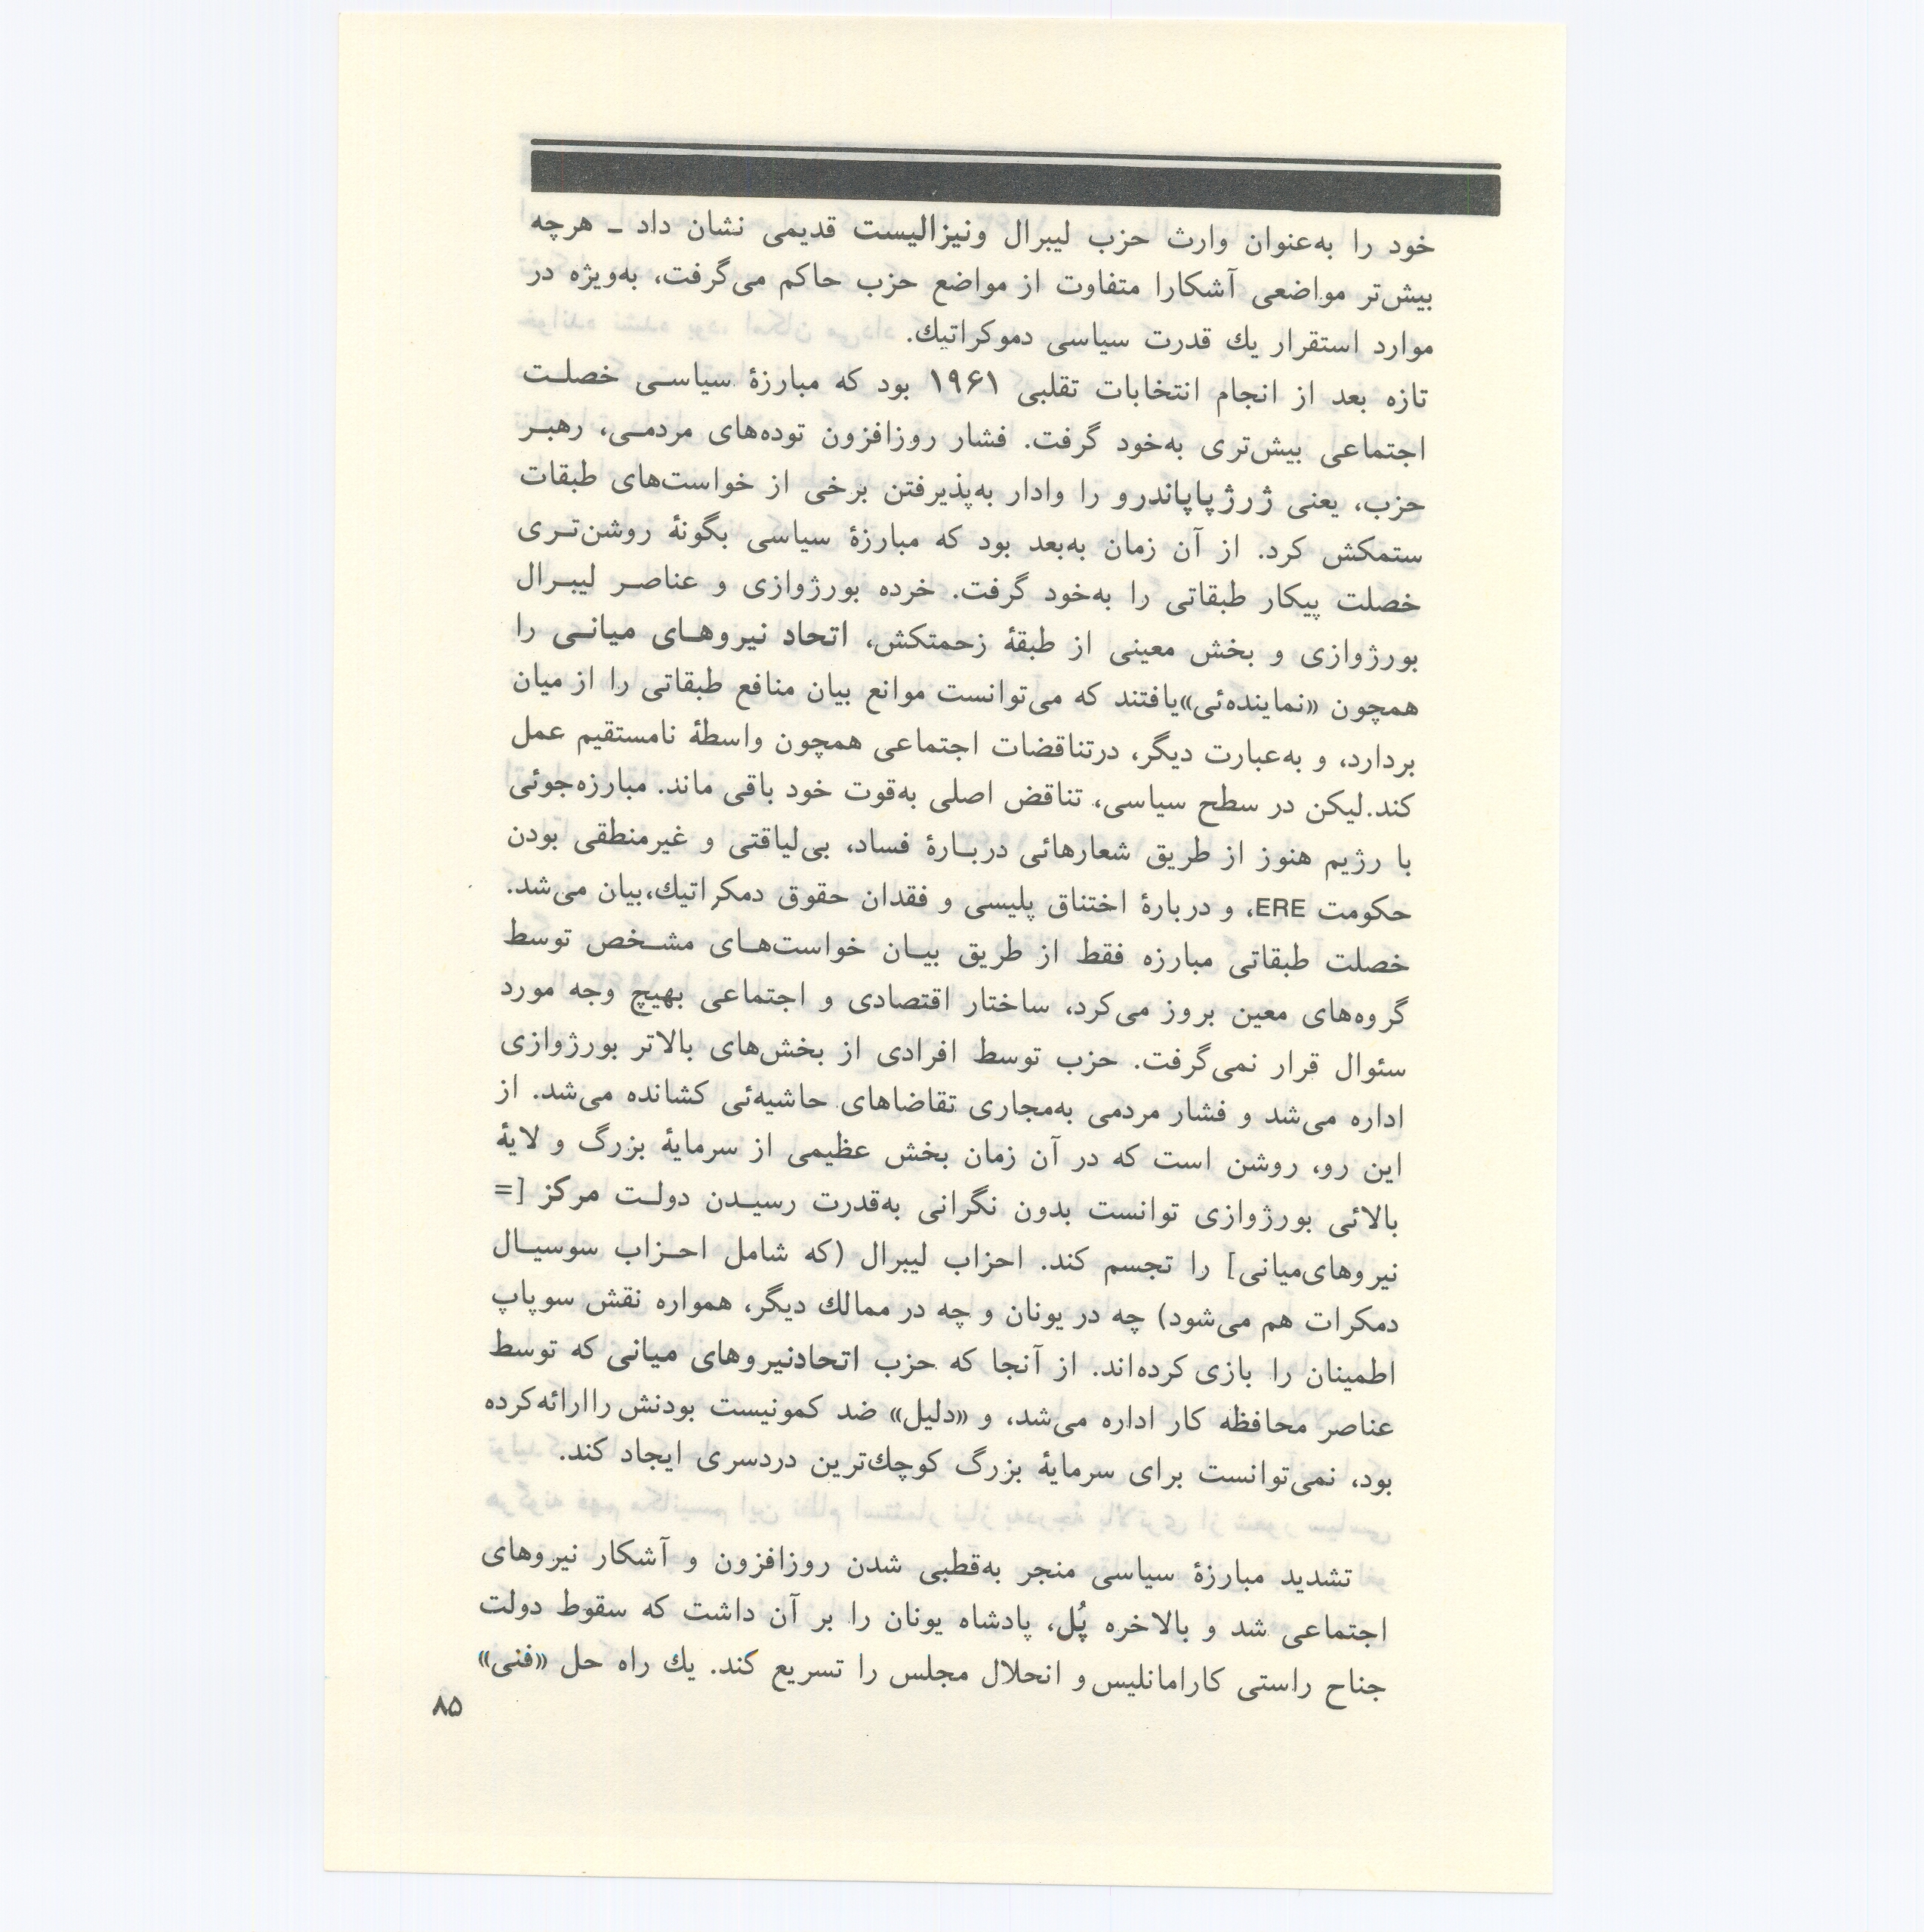 خود را به‌عنوان وارث حزب لیبرال ونیزالیست قدیمی نشان داد ـ هرچه
بیش‌تر مواضعی آشکارا متفاوت از مواضع حزب حاکم می‌گرفت، به‌ویژه در
موارد استقرار یك قدرت سیاسی دموکراتیك.
تازه بعد از انجام انتخابات تقلبی ۱۹۶۱ بود که مبارزهٔ سیاسـی خصلـت
اجتماعی بیش‌تری به‌خود گرفت. فشار روزافزون توده‌های مردمـی، رهبـر
حزب، یعنی ژرژپاپاندرو را وادار به‌پذیرفتن برخی از خواست‌های طبقات
ستمکش کرد. از آن زمان به‌بعد بود که مبارزهٔ سیاسی بگونهٔ روشن‌تـری
خصلت پیکار طبقاتی را به‌خود گرفت. خرده بورژوازی و عناصـر لیبـرال
بورژوازی و بخش معینی از طبقهٔ زحمتکش، اتحاد نیروهـای میانـی را
همچون «نماینده‌ئی»یافتند که می‌توانست موانع بیان منافع طبقاتی را از میان
بردارد، و به‌عبارت دیگر، درتناقضات اجتماعی همچون واسطهٔ نامستقیم عمل
کند.لیکن در سطح سیاسی، تناقض اصلی به‌قوت خود باقی ماند. مبارزه‌جوئی
با رژیم هنوز از طریق شعارهائی دربـارهٔ فساد، بی‌لیاقتی و غیرمنطقی بودن
حکومت ERE، و دربارهٔ اختناق پلیسی و فقدان حقوق دمکراتیك،بیان می‌شد.
خصلت طبقاتی مبارزه فقط از طریق بیـان خواست‌هـای مشـخص توسط
گروه‌های معین بروز می‌کرد، ساختار اقتصادی و اجتماعی بهیچ وجه مورد
سئوال قرار نمی‌گرفت. حزب توسط افرادی از بخش‌های بالاتر بورژوازی
اداره می‌شد و فشار مردمی به‌مجاری تقاضاهای حاشیه‌ئی کشانده می‌شد. از
این رو، روشن است که در آن زمان بخش عظیمی از سرمایهٔ بزرگ و لایهٔ
بالائی بورژوازی توانست بدون نگرانی به‌قدرت رسیـدن دولـت مرکز [=
نیروهای‌میانی] را تجسم کند. احزاب لیبرال (که شامل احـزاب سوسیـال
دمکرات هم می‌شود) چه در یونان و چه در ممالك دیگر، همواره نقش سوپاپ
اطمینان را بازی کرده‌اند. از آنجا که حزب اتحادنیروهای میانی که توسط
عناصر محافظه کار اداره می‌شد، و «دلیل» ضد کمونیست بودنش راارائه‌کرده
بود، نمی‌توانست برای سرمایهٔ بزرگ کوچك‌ترین دردسری ایجاد کند.
تشدید مبارزهٔ سیاسی منجر به‌قطبی شدن روزافزون و آشکار نیروهای
اجتماعی شد و بالاخره پُل، پادشاه یونان را بر آن داشت که سقوط دولت
جناح راستی کارامانلیس‌و انحلال مجلس را تسریع کند. یك راه حل «فنی»
۸۵